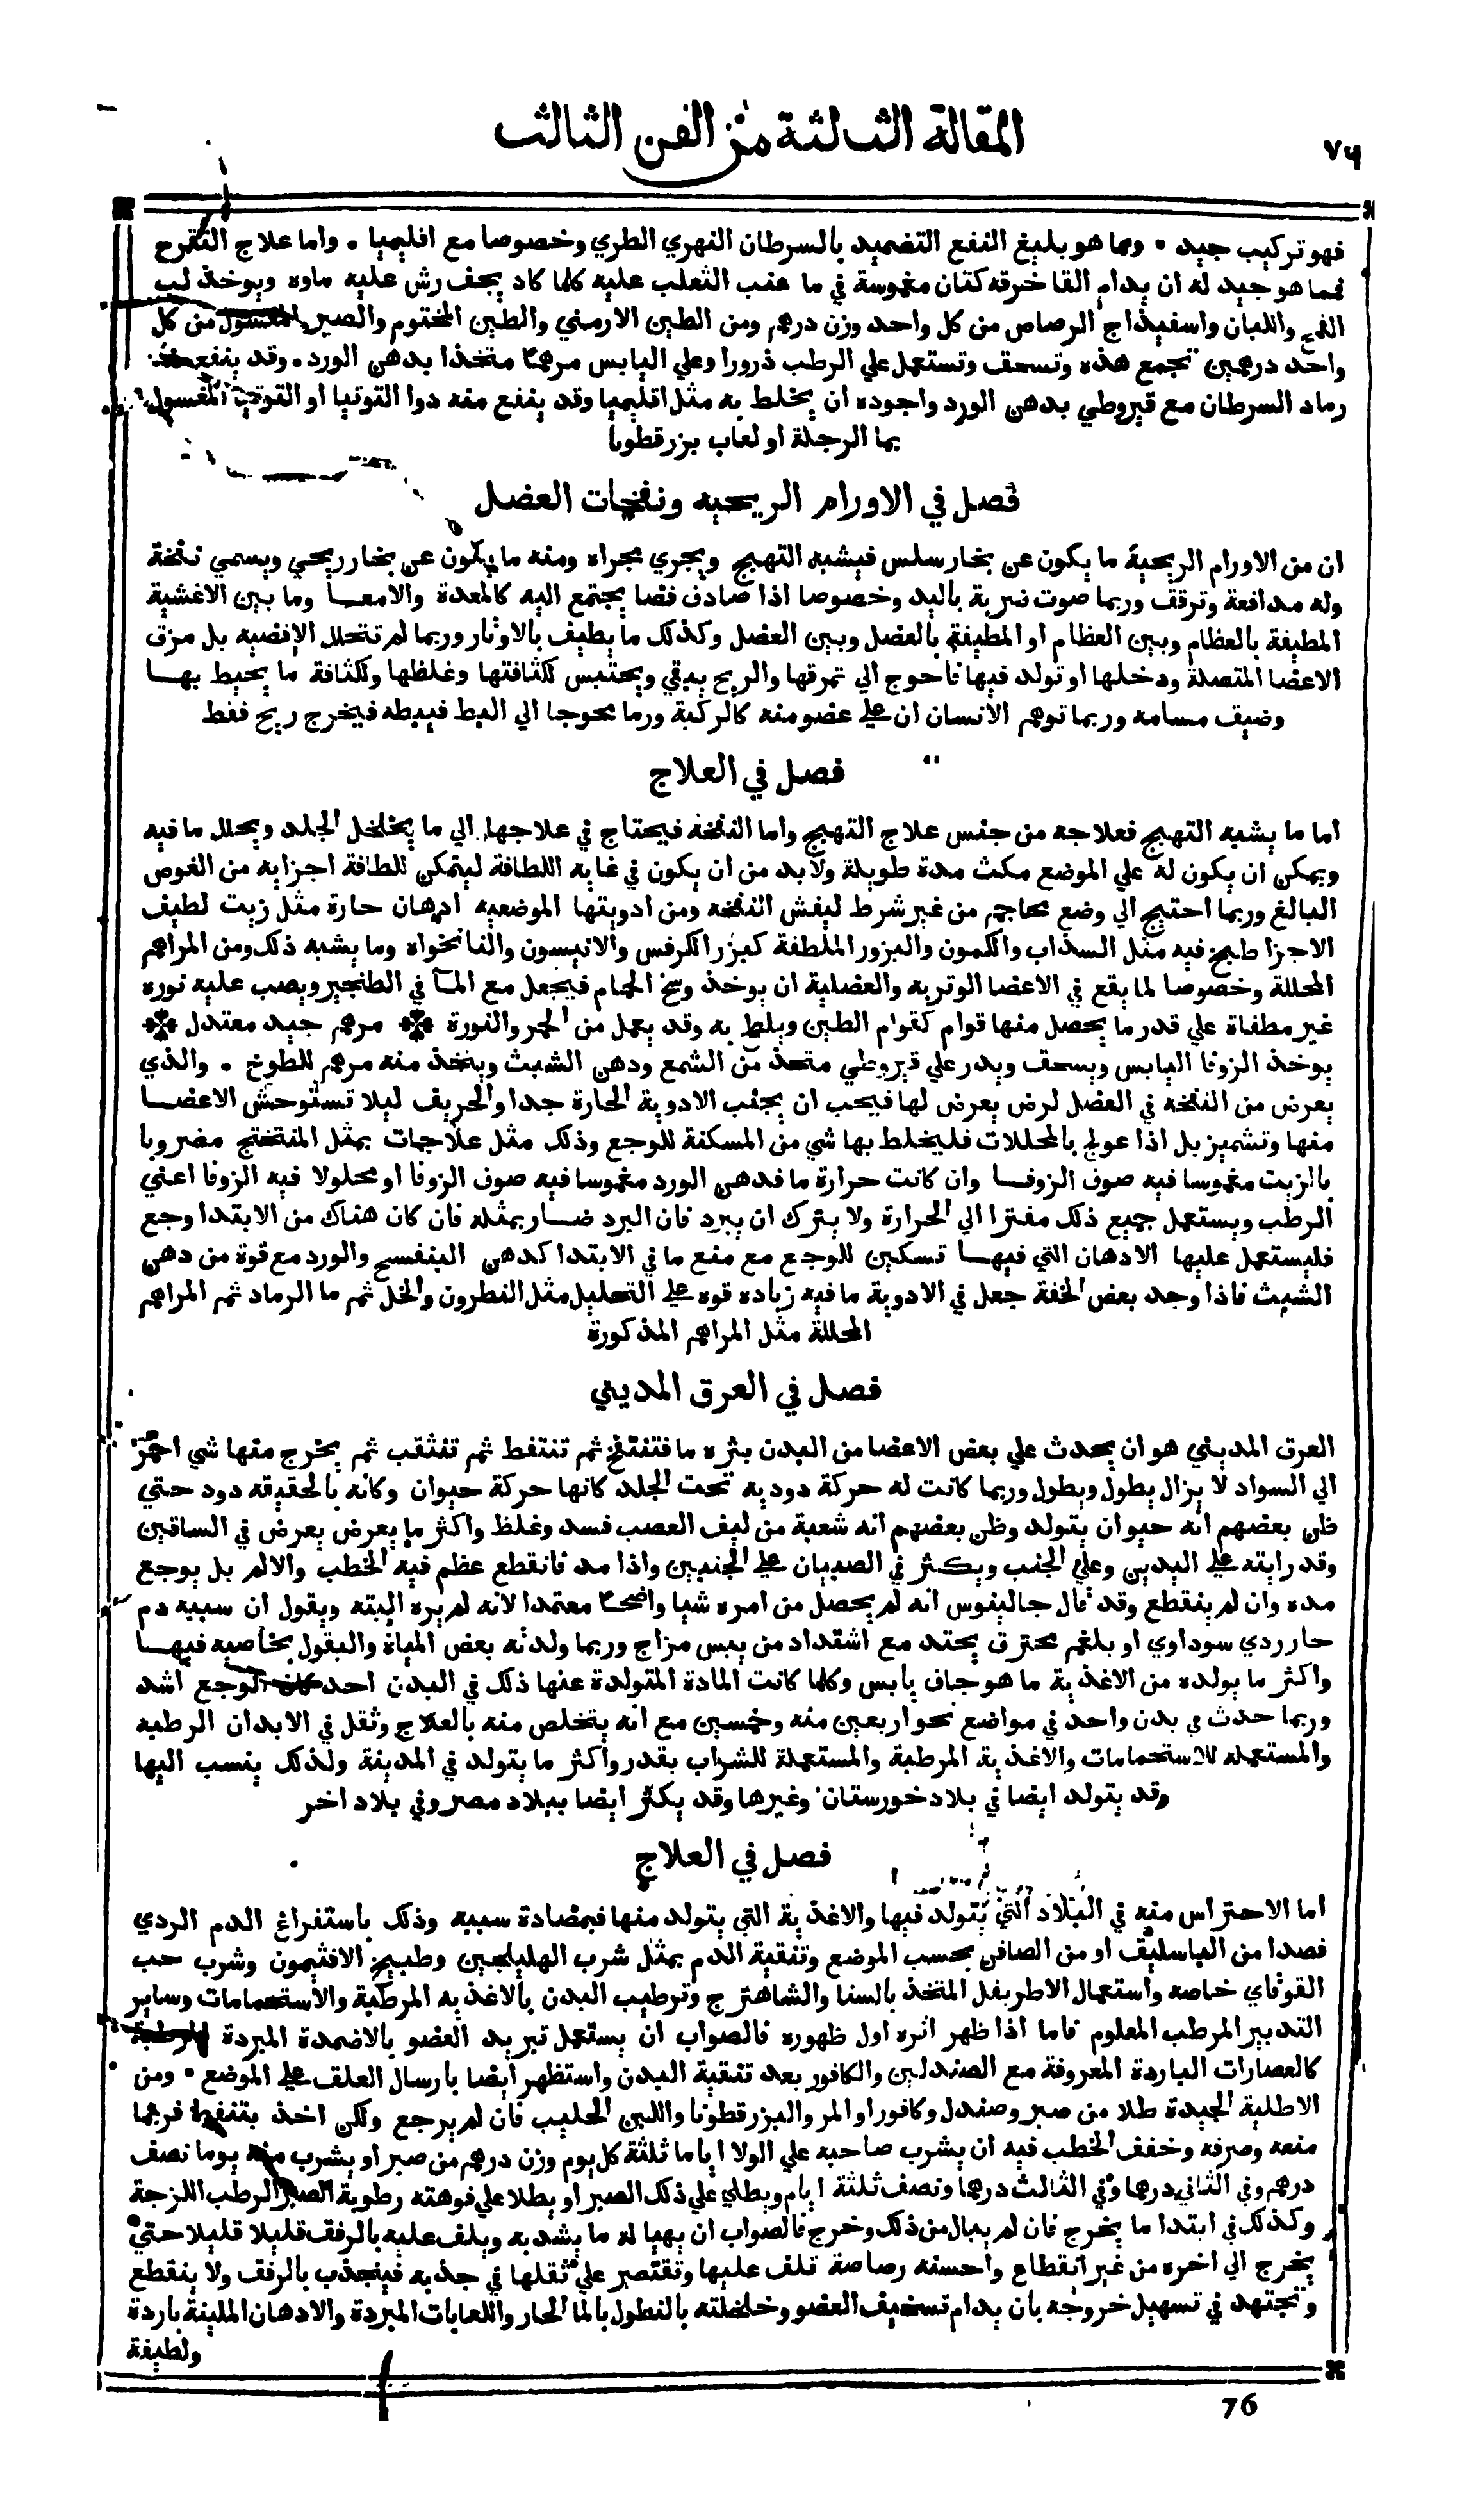 المقالة الثالثة من الفن الثالث
٧٦
فهو تركيب جيد • ومما هو بليغ النفع التضميد بالسرطان النهري الطري وخصوصا مع اقليميا • واما علاج التقرح
فمما هو جيد له ان يدام القا خرقه كتان مغموسة في ما عنب الثعلب عليه كلما كاد يجف رش عليه ماوه ويوخذ لب
القمح واللبان واسفيذاج الرصاص من كل واحد وزن درهم ومن الطين الارمني والطين المختوم والصبر المغسول من كل
واحد درهمين تجمع هذه وتسحق وتستعمل علي الرطب ذرورا وعلي اليابس مرهما متخذا بدهن الورد • وقد ينفع
رماد السرطان مع قيروطي بدهن الورد واجوده ان يخلط به مثل اقليميا وقد ينفع منه دوا التوتيا او التوتيا المغسول
بما الرجلة او لعاب بزرقطونا
فصل في الاورام الريحيه ونفخات العضل
ان من الاورام الريحية ما يكون عن بخار سلس فيشبه التهبج ويجري مجراه ومنه ما يكون عن بخار ريحي ويسمي نفخة
وله مدافعة وترقف وربما صوت ضربة باليد وخصوصا اذا صادف فضا يجتمع اليه كالمعدة والامعا وما بين الاغشية
المطيفة بالعظام وبين العظام او المطيفة بالعضل وبين العضل وكذلك ما يطيف بالاوتار وربما لم تتحلل الافضيه بل مزق
الاعضا المتصلة ودخلها او تولد فيها فاحوج الي تمزقها والريح يبقي ويحتبس لكثافتها وغلظها ولكثافة ما يحيط بها
وضيق مسامه وربما توهم الانسان ان علي عضو منه كالركبة ورما محوجا الي البط فيبطه فيخرج ريح فقط
فصل في العلاج
اما ما يشبه التهبج فعلاجه من جنس علاج التهبج واما النفخة فيحتاج في علاجها الي ما يخلخل الجلد ويحلل ما فيه
ويمكن ان يكون له علي الموضع مكث مدة طويلة ولا بد من ان يكون في غايه اللطافة ليتمكن للطافة اجزايه من الغوص
البالغ وربما احتيج الي وضع محاجم من غير شرط ليفش النفخه ومن ادويتها الموضعيه ادهان حارة مثل زيت لطيف
الاجزا طبخ فيه مثل السذاب والكمون والبزور الملطفة كبزر الكرفس والانيسون والنانخواه وما يشبه ذلك ومن المراهم
المحللة وخصوصا لما يقع في الاعضا الوتريه والعضلية ان يوخذ وسخ الحمام فيجعل مع الما في الطنجير ويصب عليه نوره
غير مطفاة علي قدر ما يحصل منها قوام كقوام الطين ويلطخ به وقد يعمل من الخمر والنورة ❉ مرهم جيد معتدل ❉
يوخذ الزوفا اليابس ويسحق ويدر علي قيروطي متخذ من الشمع ودهن الشبث ويتخذ منه مرهم للطوخ • والذي
يعرض من النفخه في العضل لرض يعرض لها فيجب ان يجنب الادوية الحارة جدا والحريف ليلا تستوحش الاعضا
منها وتشميز بل اذا عولج بالمحللات فليخلط بها شي من المسكنة للوجع وذلك مثل علاجات بمثل المنتختج مضروبا
بالزيت مغموسا فيه صوف الزوفا وان كانت حرارة ما فدهن الورد مغموسا فيه صوف الزوفا او محلولا فيه الزوفا اعني
الرطب ويستعمل جميع ذلك مفترا الي الحرارة ولا يترك ان يبرد فان البرد ضار بمثله فان كان هناك من الابتدا وجع
فليستعمل عليها الادهان التي فيها تسكين للوجع مع منع ما في الابتدا كدهن البنفسج والورد مع قوة من دهن
الشبث فاذا وجد بعض الخفة جعل في الادوية ما فيه زياده قوه علي التحليل مثل النطرون والخل ثم ما الرماد ثم المراهم
المحللة مثل المراهم المذكورة
فصل في العرق المديني
العرق المديني هو ان يحدث علي بعض الاعضا من البدن بثره ما فتنتفخ ثم تنتفط ثم تنثقب ثم يخرج منها شي احمر
الي السواد لا يزال يطول ويطول وربما كانت له حركة دوديه تحت الجلد كانها حركة حيوان وكانه بالحقيقه دود حتي
ظن بعضهم انه حيوان يتولد وظن بعضهم انه شعبة من ليف العصب فسد وغلظ واكثر ما يعرض يعرض في الساقين
وقد رايته علي اليدين وعلي الجنب ويكثر في الصبيان علي الجنبين واذا مد فانقطع عظم فيه الخطب والالم بل يوجع
مده وان لم ينقطع وقد قال جالينوس انه لم يحصل من امره شيا واضحا معتمدا لانه لم يره البته ويقول ان سببه دم
حار ردي سوداوي او بلغم محترق يحتد مع اشتداد من يبس مزاج وربما ولدته بعض المياه والبقول بخاصيه فيها
واكثر ما يولده من الاغذية ما هو جاف يابس وكلما كانت المادة المتولدة عنها ذلك في البدن احد كان الوجع اشد
وربما حدث في بدن واحد في مواضع نحو اربعين منه وخمسين مع انه يتخلص منه بالعلاج وثقل في الابدان الرطبه
والمستعمله للاستحمامات والاغذية المرطبة والمستعملة للشراب بقدر واكثر ما يتولد في المدينة ولذلك ينسب اليها
وقد يتولد ايضا في بلاد خورستان وغيرها وقد يكثر ايضا ببلاد مصر وفي بلاد اخر
فصل في العلاج
اما الاحتراس منه في البلاد التي يتولد فيها والاغذية التي يتولد منها فبمضادة سببه وذلك باستفراغ الدم الردي
فصدا من الباسليق او من الصافن بحسب الموضع وتنقية الدم بمثل شرب الهليلجين وطبيخ الافثيمون وشرب حب
القوقاي خاصه واستعمال الاطريفل المتخذ بالسنا والشاهترج وترطيب البدن بالاغذيه المرطبة والاستحمامات وساير
التدبير المرطب المعلوم فاما اذا ظهر اثره اول ظهوره فالصواب ان يستعمل تبريد العضو بالاضمدة المبردة المرطبة
كالعصارات الباردة المعروفة مع الصندلين والكافور بعد تنقية البدن واستظهر ايضا بارسال العلق علي الموضع • ومن
الاطلية الجيدة طلا من صبر وصندل وكافور او المر والبزرقطونا واللبن الحليب فان لم يرجع ولكن اخذ يتنفط فربما
منعه وصرفه وخفف الخطب فيه ان يشرب صاحبه علي الولا اياما ثلثة كل يوم وزن درهم من صبر او يشرب منه يوما نصف
درهم وفي الثاني درهما وفي الثالث درهما ونصف ثلثة ايام ويطلي علي ذلك الصبر او يطلا علي فوهته رطوبة الصبر الرطب اللزجة
وكذلك في ابتدا ما يخرج فان لم يبال من ذلك وخرج فالصواب ان يهيا له ما يشد به ويلف عليه بالرفق قليلا قليلا حتي
يخرج الي اخره من غير انقطاع واحسنه رصاصة تلف عليها وتقتصر علي ثقلها في جذبه فينجذب بالرفق ولا ينقطع
وتجتهد في تسهيل خروجه بان يدام تسخيف العضو وخلخلته بالنطول بالما الحار واللعابات المبردة والادهان الملينة باردة
ولطيفة
76